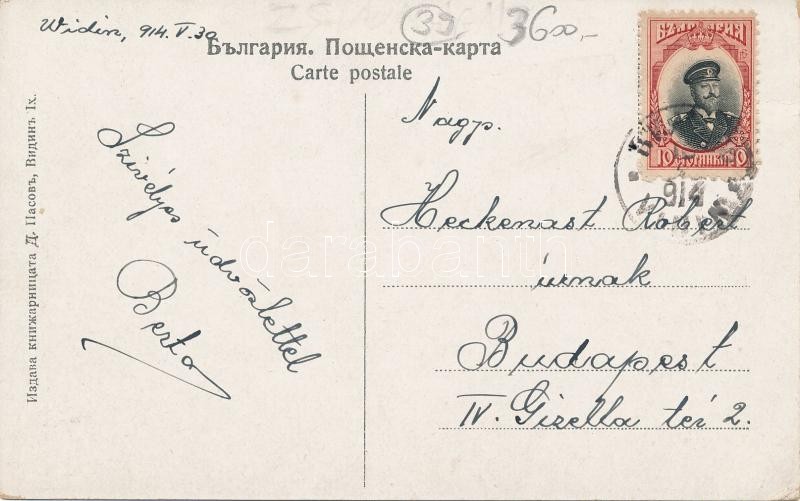 Widin, 914. V. 30
39
3600,-
България. Пощенска-карта
Carte postale
Издава книжарницата Д. Пасовъ, Видинъ. Ix.
Szivélyes üdvözlettel
Berta
БЪЛГАРИЯ
10 СТОТИНКИ 10
914
Nagys.
Heckenast Robert
úrnak
Budapest
IV. Gizella tér 2.
darabanth